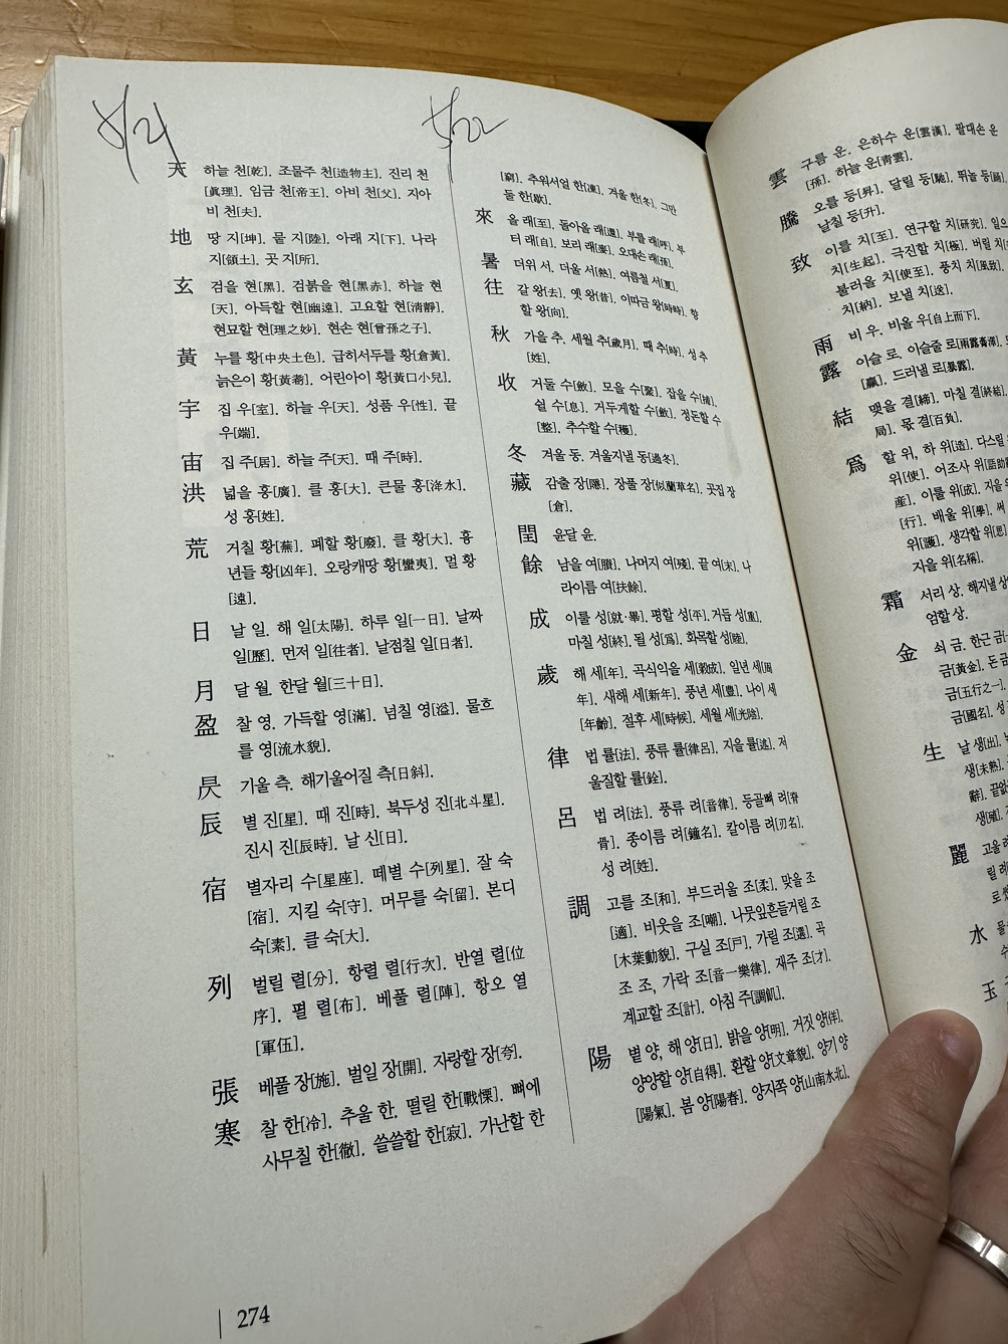 5/21
5/22
天 하늘 천[乾]. 조물주 천[造物主]. 진리 천
[眞理]. 임금 천[帝王]. 아비 천[父]. 지아
비 천[夫].
地 땅 지[坤]. 뭍 지[陸]. 아래 지[下]. 나라
지[領土]. 곳 지[所].
玄 검을 현[黑]. 검붉을 현[黑赤]. 하늘 현
[天]. 아득할 현[幽遠]. 고요할 현[淸靜].
현묘할 현[理之妙]. 현손 현[曾孫之子].
黃 누를 황[中央土色]. 급히서두를 황[倉黃].
늙은이 황[黃耈]. 어린아이 황[黃口小兒].
宇 집 우[室]. 하늘 우[天]. 성품 우[性]. 끝
우[端].
宙 집 주[居]. 하늘 주[天]. 때 주[時].
洪 넓을 홍[廣]. 클 홍[大]. 큰물 홍[洚水].
성 홍[姓].
荒 거칠 황[蕪]. 폐할 황[廢]. 클 황[大]. 흉
년들 황[凶年]. 오랑캐땅 황[蠻夷]. 멀 황
[遠].
日 날 일. 해 일[太陽]. 하루 일[一日]. 날짜
일[歷]. 먼저 일[往者]. 날점칠 일[日者].
月 달 월. 한달 월[三十日].
盈 찰 영. 가득할 영[滿]. 넘칠 영[溢]. 물흐
를 영[流水貌].
昃 기울 측. 해기울어질 측[日斜].
辰 별 진[星]. 때 진[時]. 북두성 진[北斗星].
진시 진[辰時]. 날 신[日].
宿 별자리 수[星座]. 떼별 수[列星]. 잘 숙
[宿]. 지킬 숙[守]. 머무를 숙[留]. 본디
숙[素]. 클 숙[大].
列 벌릴 렬[分]. 항렬 렬[行次]. 반열 렬[位
序]. 펼 렬[布]. 베풀 렬[陣]. 항오 열
[軍伍].
張 베풀 장[施]. 벌일 장[開]. 자랑할 장[夸].
寒 찰 한[冷]. 추울 한. 떨릴 한[戰慄]. 뼈에
사무칠 한[徹]. 쓸쓸할 한[寂]. 가난할 한
[窮]. 추워서얼 한[凍]. 겨울 한[冬]. 그만
둘 한[歇].
來 올 래[至]. 돌아올 래[還]. 부를 래[呼]. 부
터 래[自]. 보리 래[麥]. 오대손 래[孫].
暑 더위 서. 더울 서[熱]. 여름철 서[夏].
往 갈 왕[去]. 옛 왕[昔]. 이따금 왕[時時]. 향
할 왕[向].
秋 가을 추. 세월 추[歲月]. 때 추[時]. 성 추
[姓].
收 거둘 수[斂]. 모을 수[聚]. 잡을 수[捕].
쉴 수[息]. 거두게할 수[斂]. 정돈할 수
[整]. 추수할 수[穫].
冬 겨울 동. 겨울지낼 동[過冬].
藏 감출 장[隱]. 장풀 장[似蘭草名]. 곳집 장
[倉].
閏 윤달 윤.
餘 남을 여[賸]. 나머지 여[殘]. 끝 여[末]. 나
라이름 여[扶餘].
成 이룰 성[就·畢]. 평할 성[平]. 거듭 성[重].
마칠 성[終]. 될 성[爲]. 화목할 성[睦].
歲 해 세[年]. 곡식익을 세[穀成]. 일년 세[周
年]. 새해 세[新年]. 풍년 세[豊]. 나이 세
[年齡]. 절후 세[時候]. 세월 세[光陰].
律 법 률[法]. 풍류 률[律呂]. 지을 률[述]. 저
울질할 률[銓].
呂 법 려[法]. 풍류 려[音律]. 등골뼈 려[脊
骨]. 종이름 려[鐘名]. 칼이름 려[刃名].
성 려[姓].
調 고를 조[和]. 부드러울 조[柔]. 맞을 조
[適]. 비웃을 조[嘲]. 나뭇잎흔들거릴 조
[木葉動貌]. 구실 조[戶]. 가릴 조[選]. 곡
조 조, 가락 조[音一樂律]. 재주 조[才].
계교할 조[計]. 아침 주[調飢].
陽 볕 양, 해 양[日]. 밝을 양[明]. 거짓 양[佯].
양양할 양[自得]. 환할 양[文章貌]. 양기 양
[陽氣]. 봄 양[陽春]. 양지쪽 양[山南水北].
274
雲 구름 운. 은하수 운[雲漢]. 팔대손 운
[孫]. 하늘 운[靑雲].
騰 오를 등[昇]. 달릴 등[馳]. 뛰놀 등[躍].
날칠 등[升].
致 이를 치[至]. 연구할 치[硏究].
치[生起]. 극진할 치[極]. 버릴
불러올 치[使至]. 풍치 치[風致].
치[納]. 보낼 치[送].
雨 비 우. 비올 우[自上而下].
露 이슬 로. 이슬줄 로
[羸]. 드러낼 로[暴露].
結 맺을 결[締]. 마칠 결[終結].
局]. 몫 결[百負].
爲 할 위, 하 위[造]. 다스릴
위[使]. 어조사 위[語助辭
産]. 이룰 위[成]. 지을
[行]. 배울 위[學]. 써
위[護]. 생각할 위[思]
자을 위[名稱].
霜 서리 상. 해지낼
엄할 상.
金 쇠 금. 한근 금
금[黃金]. 돈
금[五行之一].
금[國名]. 성
生 날 생[出].
생[未熟].
麗 고울
水
玉